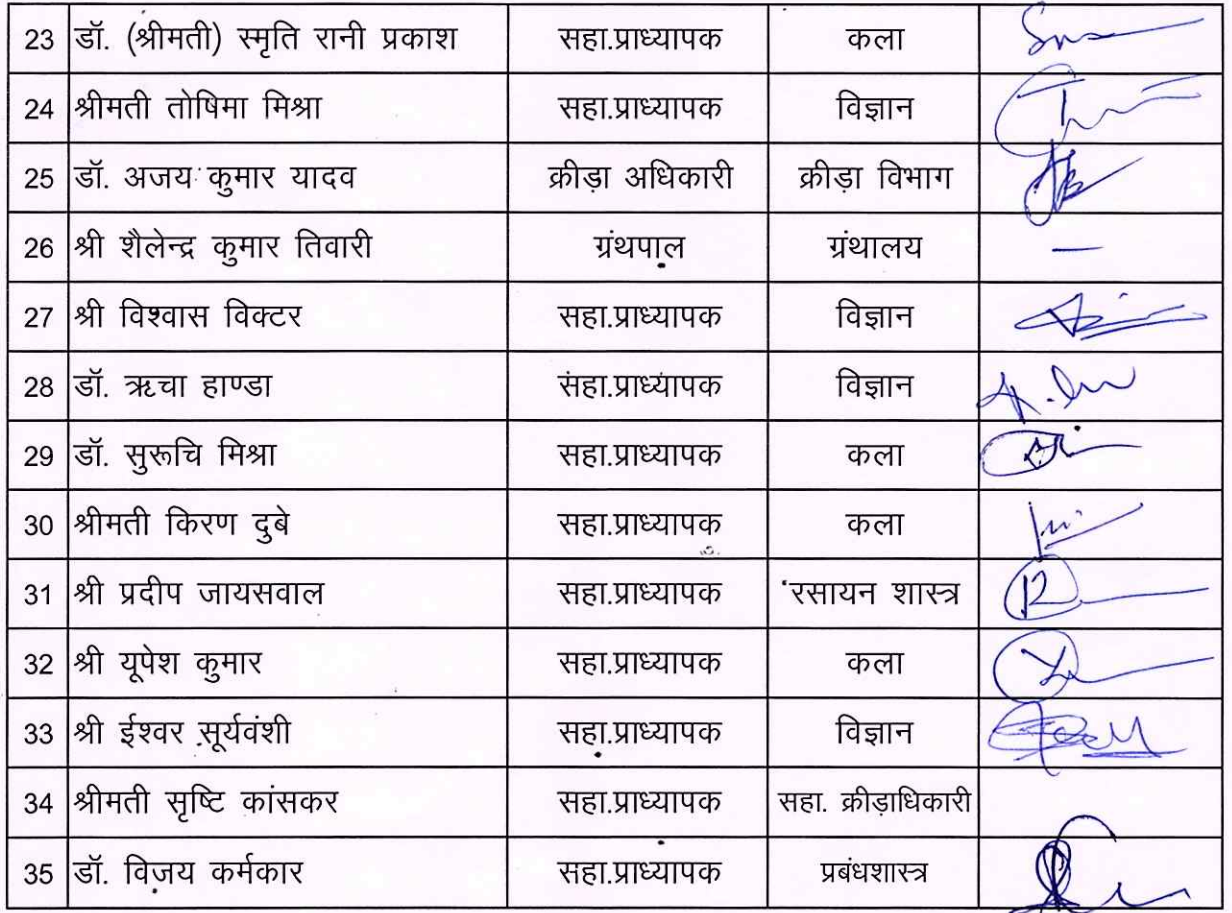 23 डॉ. (श्रीमती) स्मृति रानी प्रकाश सहा.प्राध्यापक कला
24 श्रीमती तोषिमा मिश्रा सहा.प्राध्यापक विज्ञान
25 डॉ. अजय कुमार यादव क्रीड़ा अधिकारी क्रीड़ा विभाग
26 श्री शैलेन्द्र कुमार तिवारी ग्रंथपाल ग्रंथालय —
27 श्री विश्वास विक्टर सहा.प्राध्यापक विज्ञान
28 डॉ. ऋचा हाण्डा सहा.प्राध्यापक विज्ञान
29 डॉ. सुरूचि मिश्रा सहा.प्राध्यापक कला
30 श्रीमती किरण दुबे सहा.प्राध्यापक कला
31 श्री प्रदीप जायसवाल सहा.प्राध्यापक रसायन शास्त्र
32 श्री यूपेश कुमार सहा.प्राध्यापक कला
33 श्री ईश्वर सूर्यवंशी सहा.प्राध्यापक विज्ञान
34 श्रीमती सृष्टि कांसकर सहा.प्राध्यापक सहा. क्रीड़ाधिकारी
35 डॉ. विजय कर्मकार सहा.प्राध्यापक प्रबंधशास्त्र